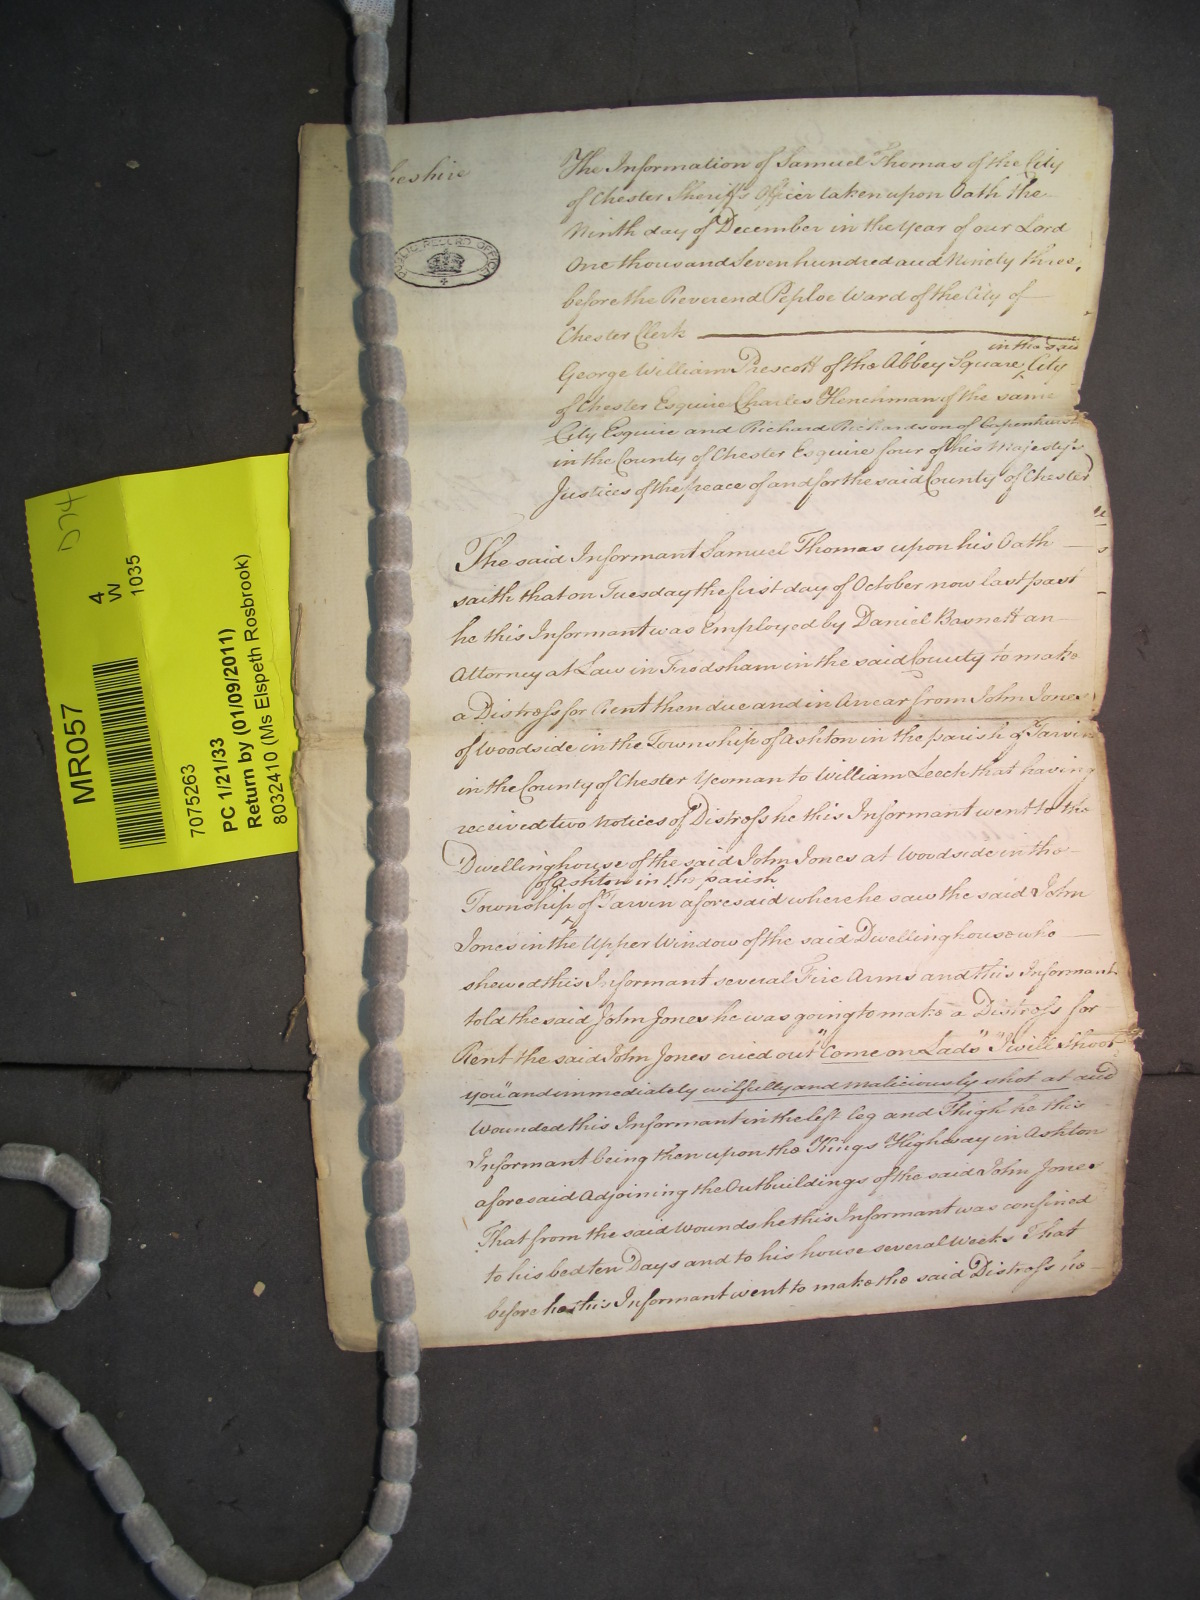 Cheshire
PUBLIC RECORD OFFICE
The Information of Samuel Thomas of the City
of Chester Sheriff's Officer taken upon Oath the
Ninth day of December in the Year of our Lord
One thousand Seven hundred and Ninety three,
before the Reverend Peploe Ward of the City of
Chester Clerk
in the said
George William Prescott of the Abbey Square ‸ City
of Chester Esquire Charles Henchman of the same
City Esquire and Richard Richardson of Capenhurst
in the County of Chester Esquire four of his Majesty's
Justices of the peace of and for the said County of Chester
The said Informant Samuel Thomas upon his Oath
saith that on Tuesday the first day of October now last past
he this Informant was Employed by Daniel Basnett an
Attorney at Law in Frodsham in the said County to make
a Distress for Rent then due and in Arrear from John Jones
of Woodside in the Township of Ashton in the parish of Tarvin
in the County of Chester Yeoman to William Leech that having
received two Notices of Distress he this Informant went to the
Dwellinghouse of the said John Jones at Woodside in the
of Ashton in the parish
Township ‸ of Tarvin aforesaid where he saw the said John
Jones in the Upper Window of the said Dwellinghouse who
shewed this Informant several Fire Arms and this Informant
told the said John Jones he was going to make a Distress for
Rent the said John Jones cried out "Come on Lads" "I will Shoot
you" and immediately wilfully and maliciously shot at and
wounded this Informant in the left leg and Thigh he this
Informant being then upon the Kings Highway in Ashton
aforesaid Adjoining the Outbuildings of the said John Jones
That from the said Wounds he this Informant was confined
to his bed ten Days and to his house several Weeks That
before he this Informant went to make the said Distress he
MR057
4
W
1035
7075263
PC 1/21/33
Return by (01/09/2011)
8032410 (Ms Elspeth Rosbrook)